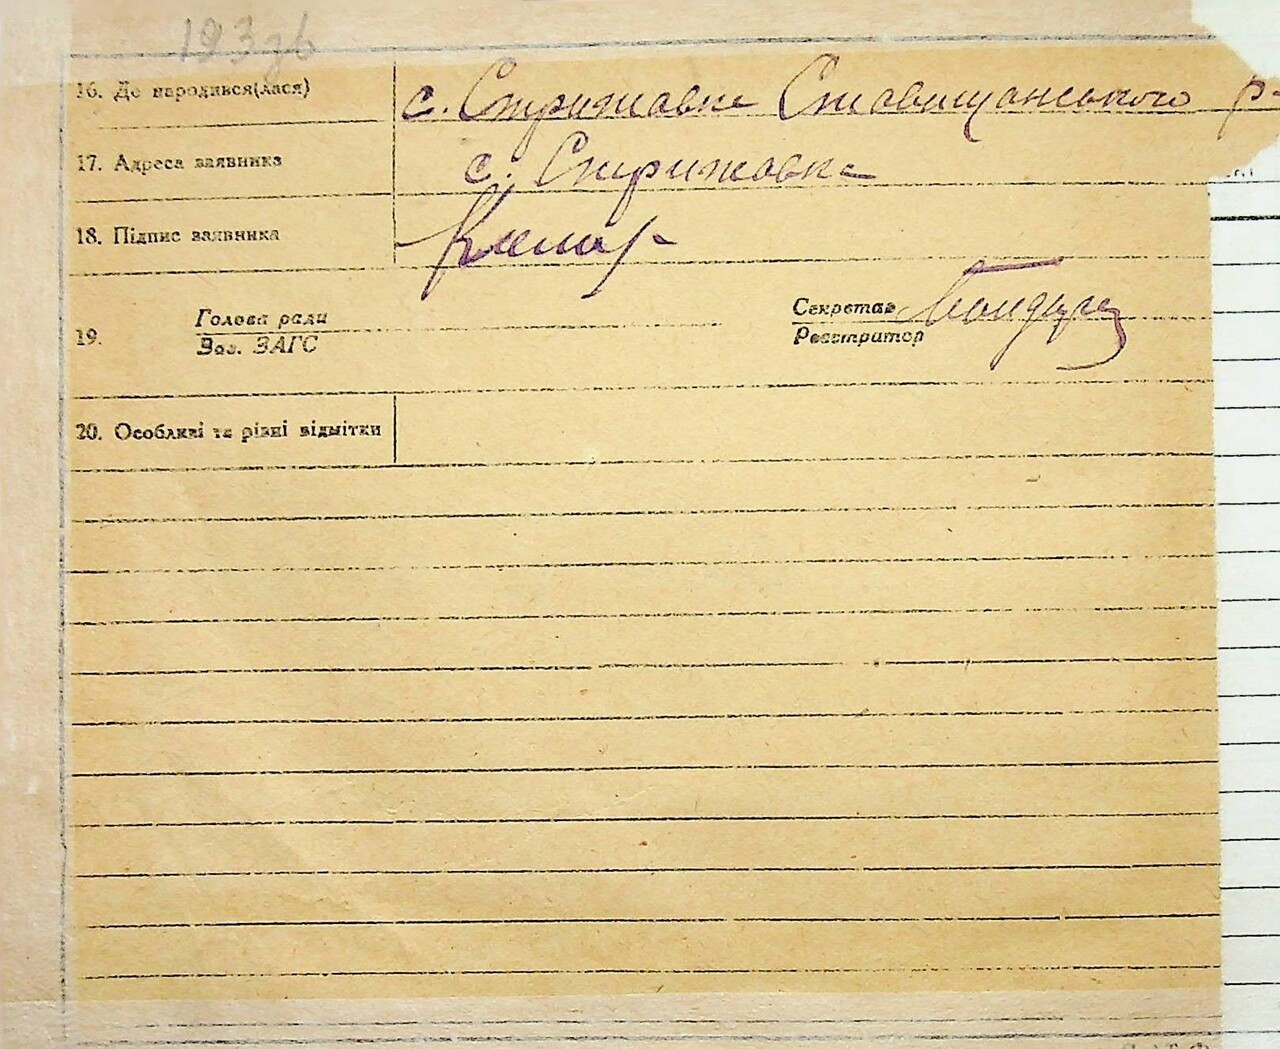 193зв
16. Де народився(лася) с. Стрижовка Ставищанського р-
17. Адреса заявника с. Стрижовка
18. Підпис заявника
19. Голова ради Секретар
Зав. ЗАГС Реєстратор
20. Особливі та різні відмітки